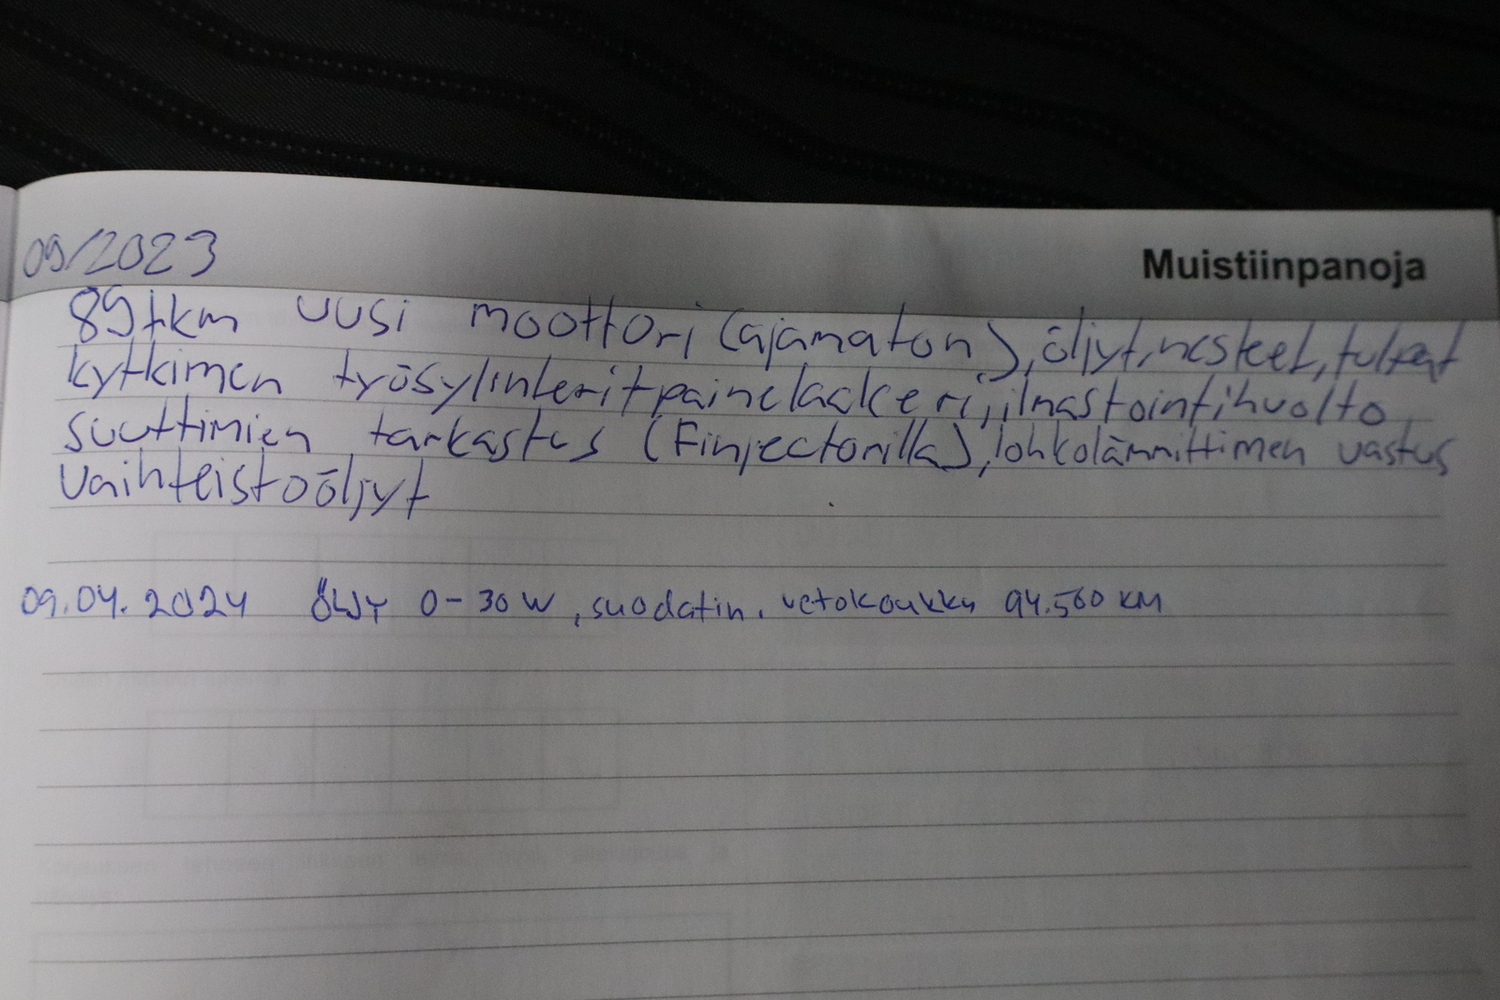 09/2023
Muistiinpanoja
89tkm uusi moottori (ajamaton), öljyt, nesteet, tulpat
kytkimen työsylinterit painelaakeri, ilmastointihuolto
suuttimien tarkastus (Finjectorilla), lohkolämmittimen vastus
vaihteistoöljyt
09.04.2024 ÖLJY 0-30W, suodatin, vetokoukku 94.560 KM